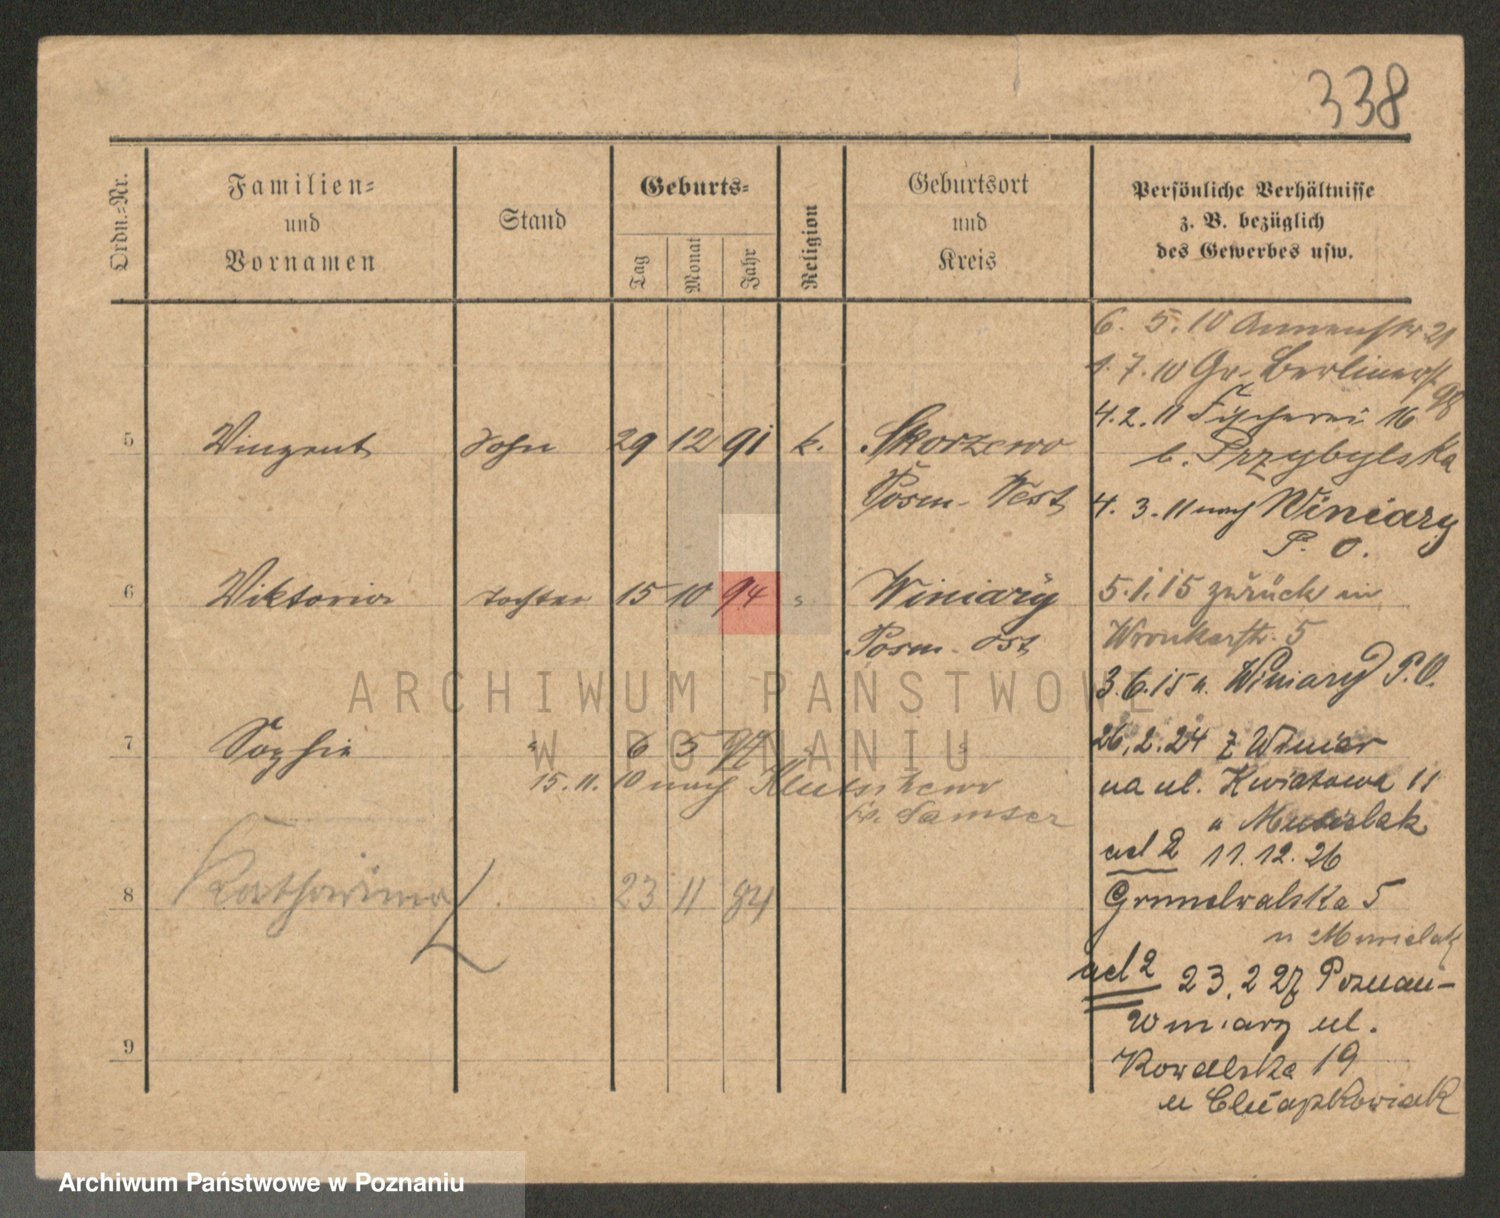 338
Ordn.=Nr.
Familien=
und
Vornamen
Stand
Geburts=
Tag
Monat
Jahr
Religion
Geburtsort
und
Kreis
Persönliche Verhältnisse
z. B. bezüglich
des Gewerbes usw.
6. 5. 10 Annenstr 21
1. 7. 10 Gr. Berlinerst. 98
4. 2. 11 Fischerei 16
b. Przybylska
4. 3. 11 nach Winiary
P. O.
5 Vinzent Sohn 29 12 91 k. Skorzewo
Posen-West
6 Viktoria Tochter 15 10 94 " Winiary
Posen-Ost
5. 1. 15 zurück in
Wronkerstr. 5
3. 6. 15 n. Winiary P.O.
7 Sophie " 6 5 97 " "
15. 11. 10 nach
Kr. Samter
26. 2. 24 z Winiar
na ul. Kwiatowa 11
u Musielak
ad 2 11. 12. 26
Grunwalska 5
u Musielak
8 Katharina 23 11 84
ad 2 23. 2 27 Poznań-
Winiary ul.
Kowalska 19
u
9
ARCHIWUM PAŃSTWOWE
W POZNANIU
Archiwum Państwowe w Poznaniu